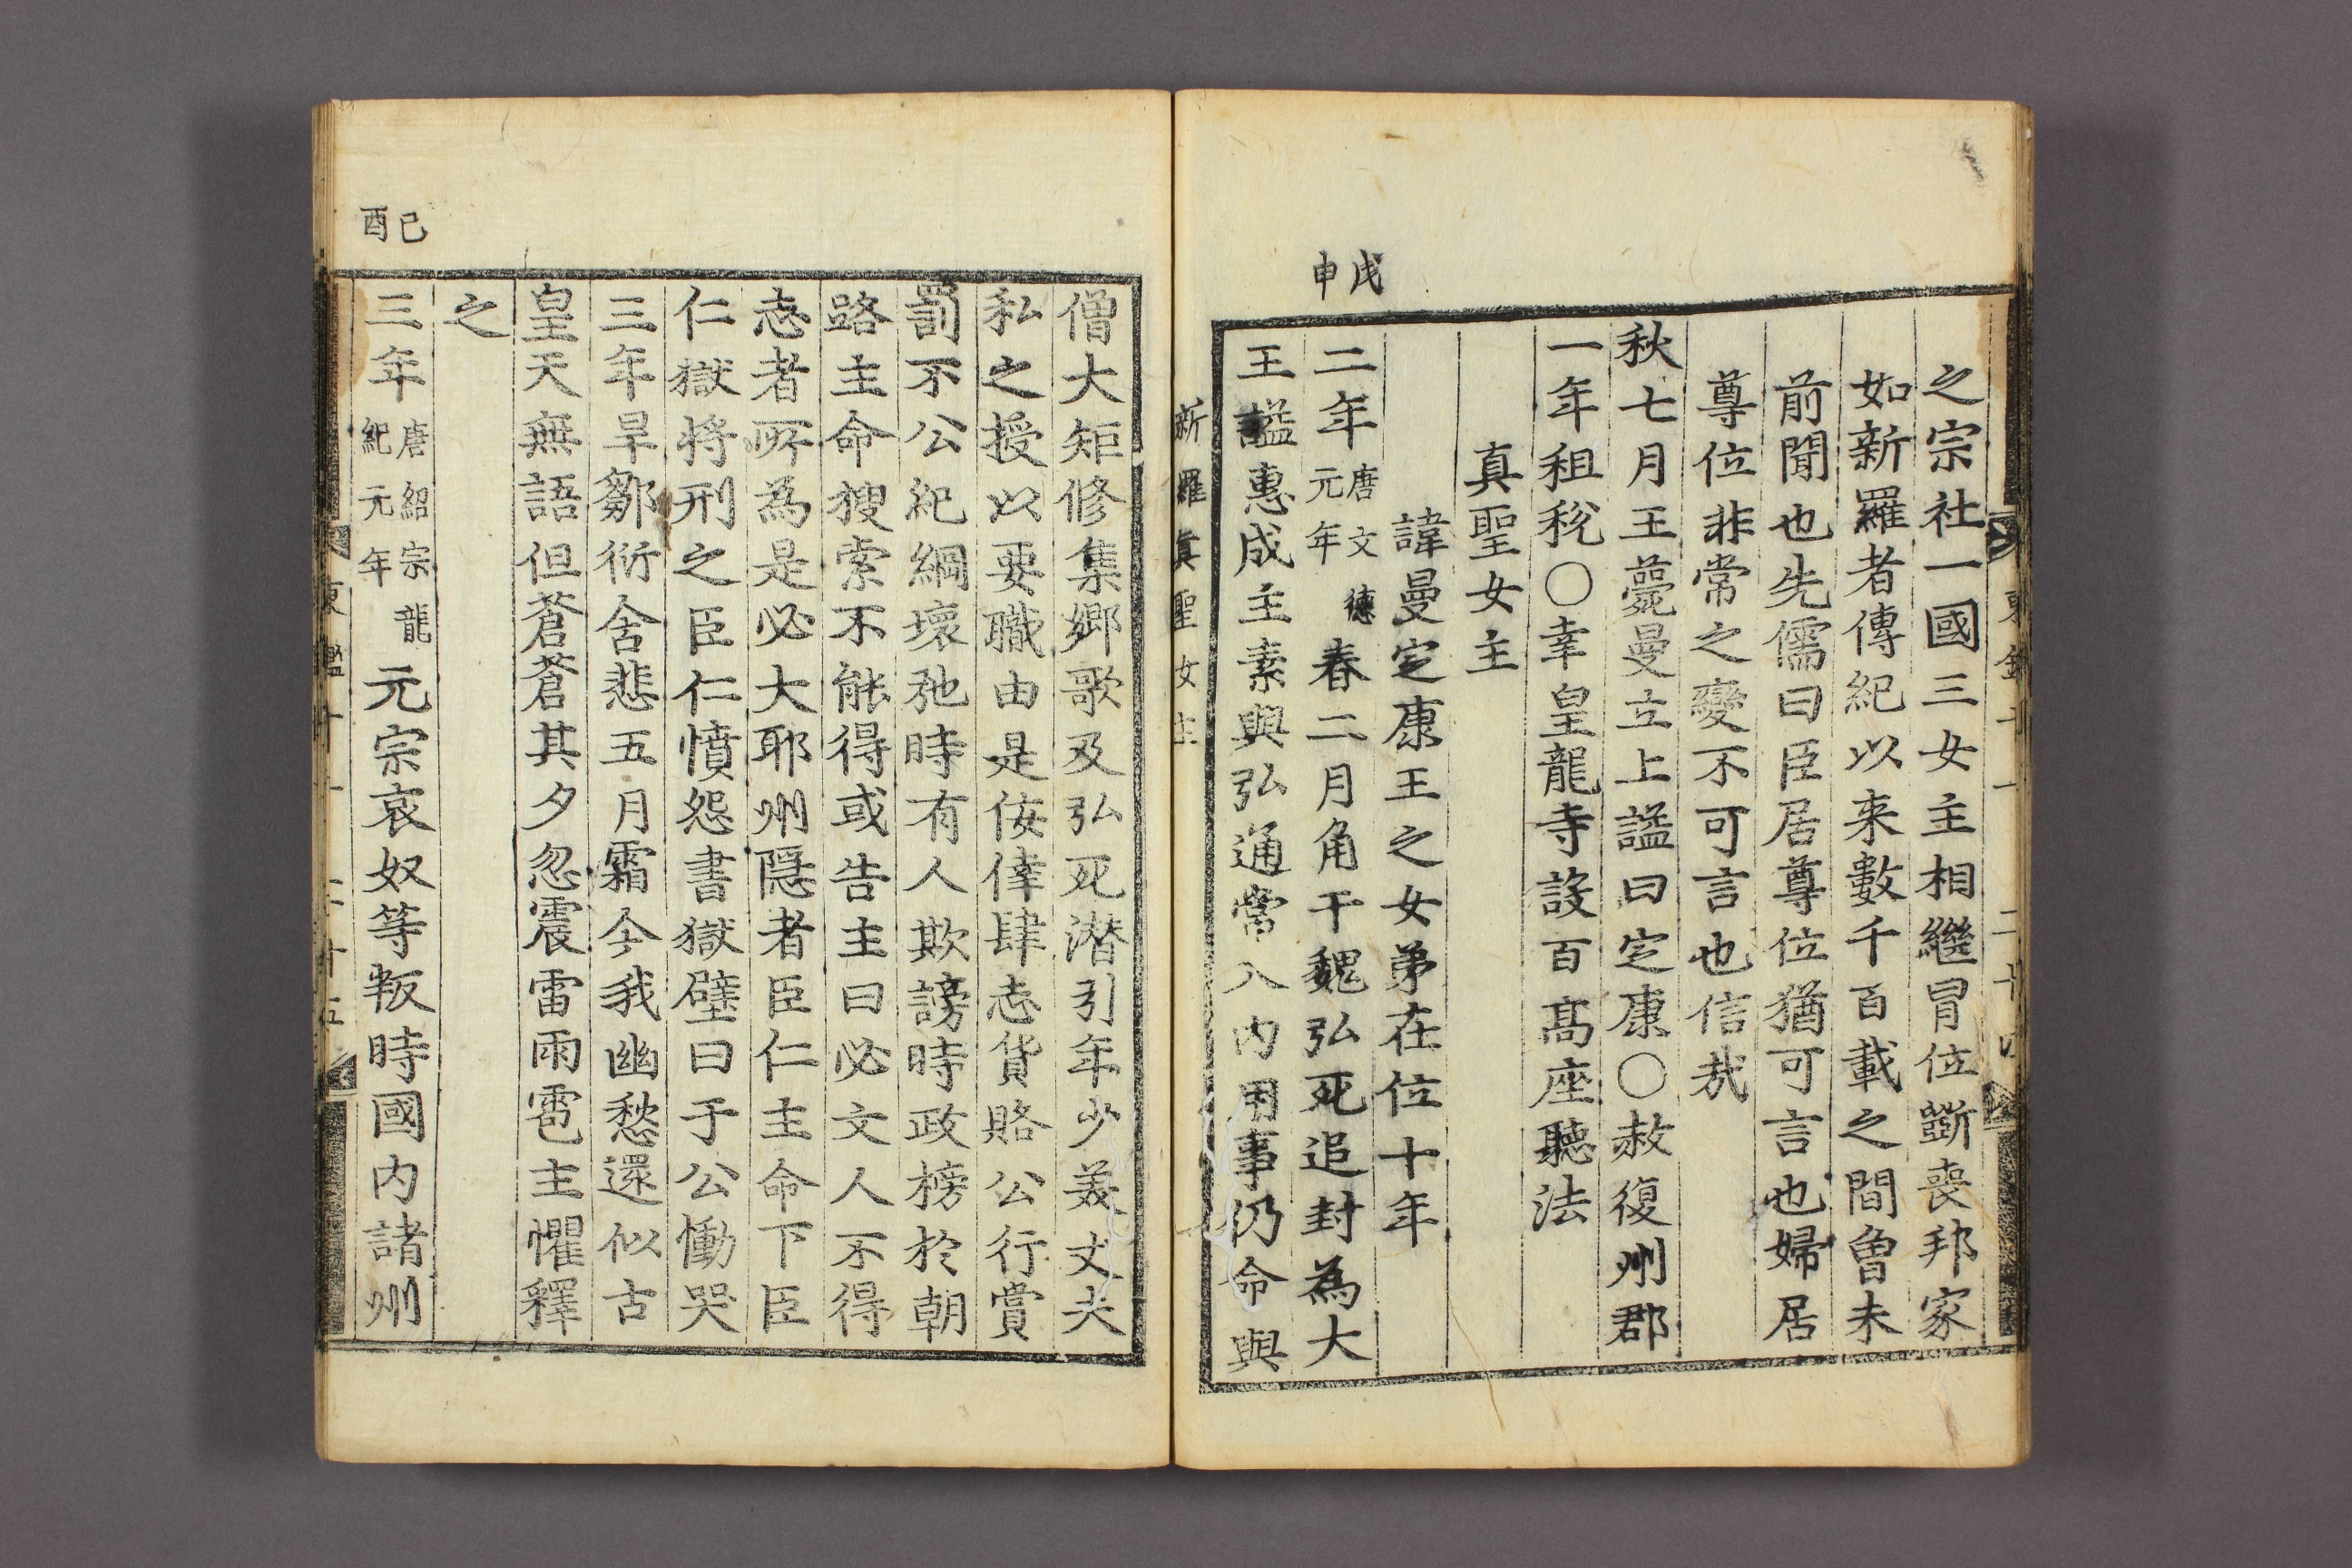 之宗社一國三女主相繼冒位斲喪邦家
如新羅者傳紀以来數千百載之間曾未
前聞也先儒曰臣居尊位猶可言也婦居
尊位非常之變不可言也信㢤
秋七月王薨曼立上諡曰定康〇赦復州郡
一年租稅〇幸皇龍寺設百髙座聽法
真聖女主
諱曼定康王之女弟在位十年
戊申
二年唐文德元年春二月角干魏弘死追封為大
王諡惠成主素與弘通常入内用事仍命與
新羅真聖女主
僧大矩修集郷歌及弘死潜引年少美丈夫
私之授以要職由是侫倖肆志貨賂公行賞
罰不公紀綱壞弛時有人欺謗時政榜於朝
路主命搜索不能得或告主曰必文人不得
志者所為是必大耶州隱者臣仁主命下臣
仁獄將刑之臣仁憤怨書獄壁曰于公慟哭
三年旱鄒衍含悲五月霜今我幽愁還似古
皇天無語但蒼蒼其夕忽震雷雨雹主懼釋
之
己酉
三年唐紹宗龍紀元年元宗哀奴等叛時國内諸州
東鑑十一 二十五